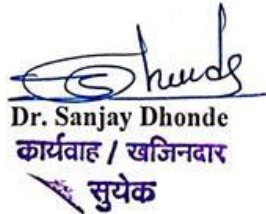 Dr. Sanjay Dhonde
कार्यवाह / खजिनदार
सुयेक